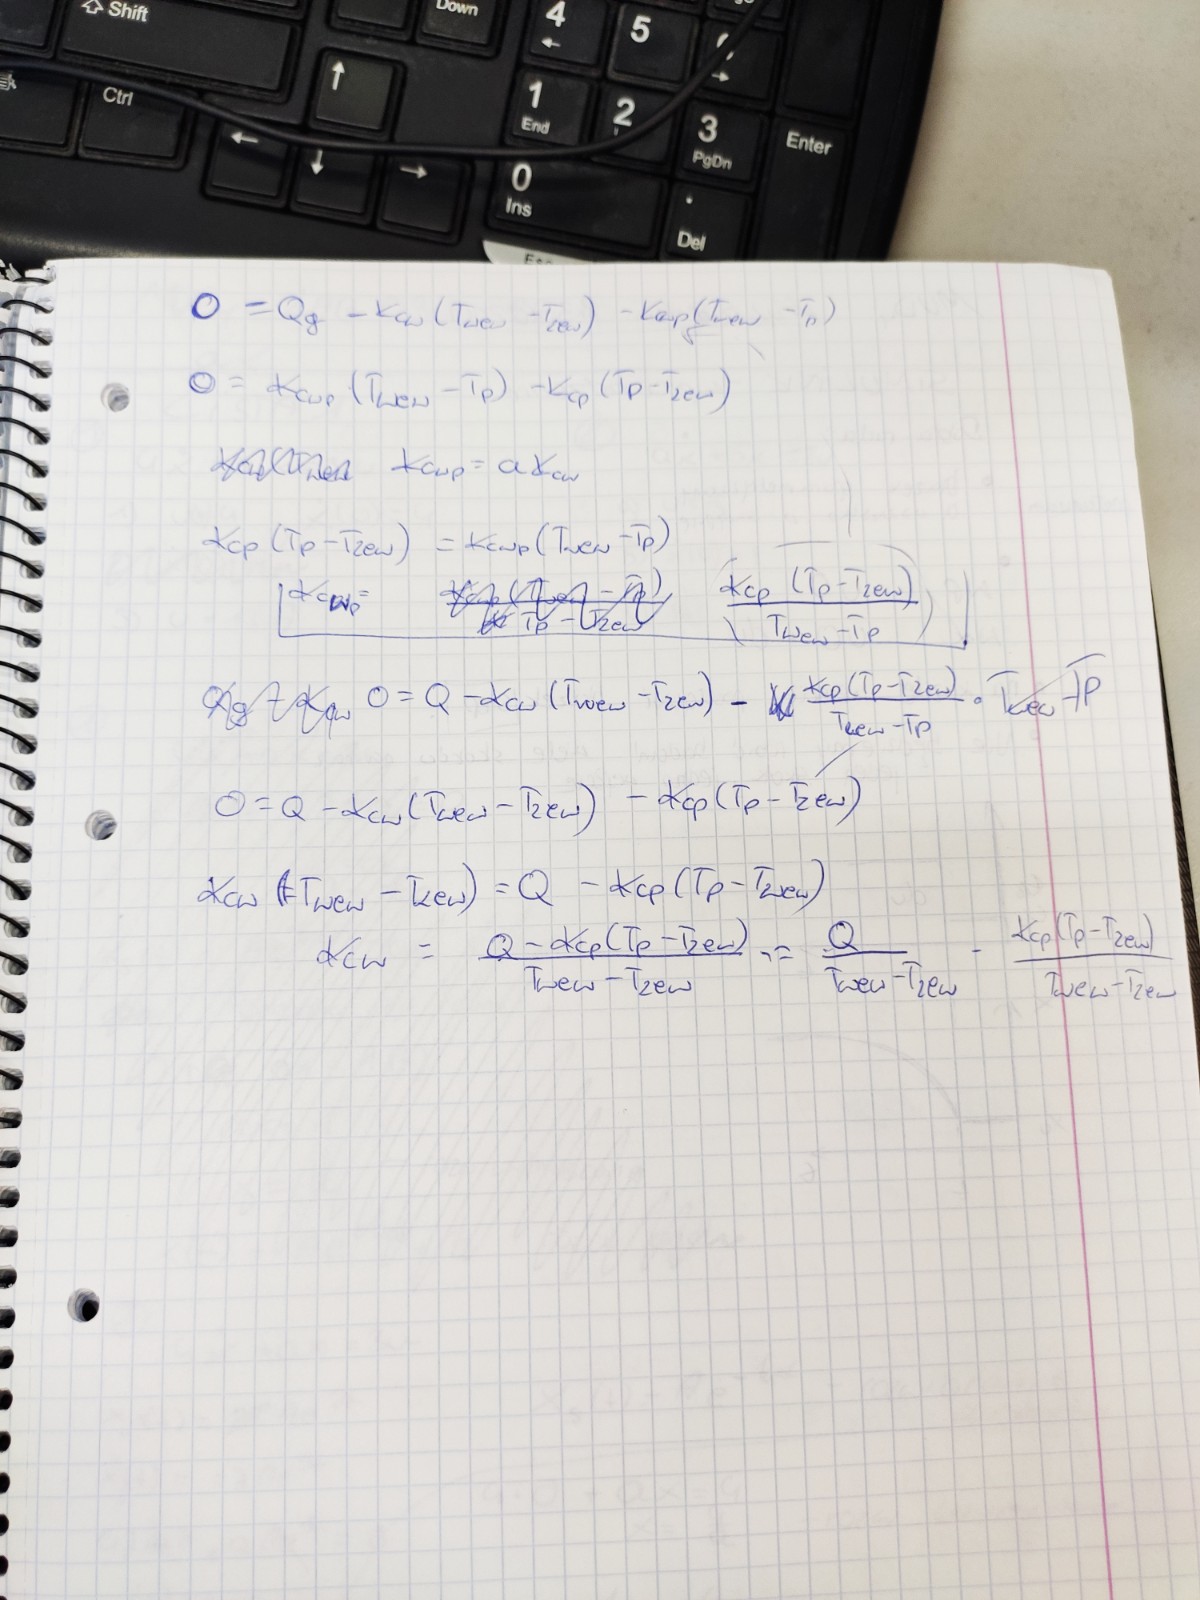 ⇧ Shift
Down
4
←
5
→
Ctrl
↑
1
End
2
3
PgDn
Enter
←
↓
→
0
Ins
.
Del
0 = Qg - Kcw (Twew - Tzew) - Kcwp (Twew - Tp)
0 = Kcwp (Twew - Tp) - Kcp (Tp - Tzew)
Kcwp = a Kcw
Kcp (Tp - Tzew) = Kcwp (Twew - Tp)
Kcwp = Kcp (Tp - Tzew) / Twew - Tp
0 = Q - Kcw (Twew - Tzew) - Kcp (Tp - Tzew) / Twew - Tp · Twew - Tp
0 = Q - Kcw (Twew - Tzew) - Kcp (Tp - Tzew)
Kcw (Twew - Tzew) = Q - Kcp (Tp - Tzew)
Kcw = Q - Kcp (Tp - Tzew) / Twew - Tzew = Q / Twew - Tzew - Kcp (Tp - Tzew) / Twew - Tzew